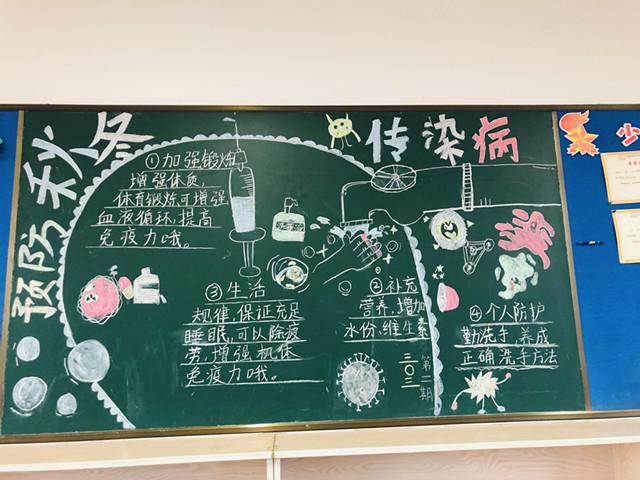 预防秋冬
传染病
①加强锻炼
增强体质,
体育锻炼可增强
血液循环,提高
免疫力哦。
③生活
规律,保证充足
睡眠,可以除疲
劳,增强机体
免疫力哦。
②补充
营养,增加
水份、维生素
④个人防护
勤洗手,养成
正确洗手方法
三〇三
第二期
少